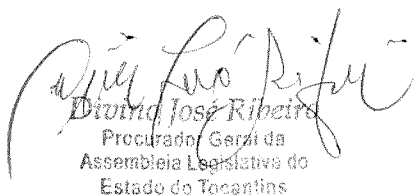 Divino José Ribeiro
Procurador Geral da
Assembleia Legislativa do
Estado do Tocantins